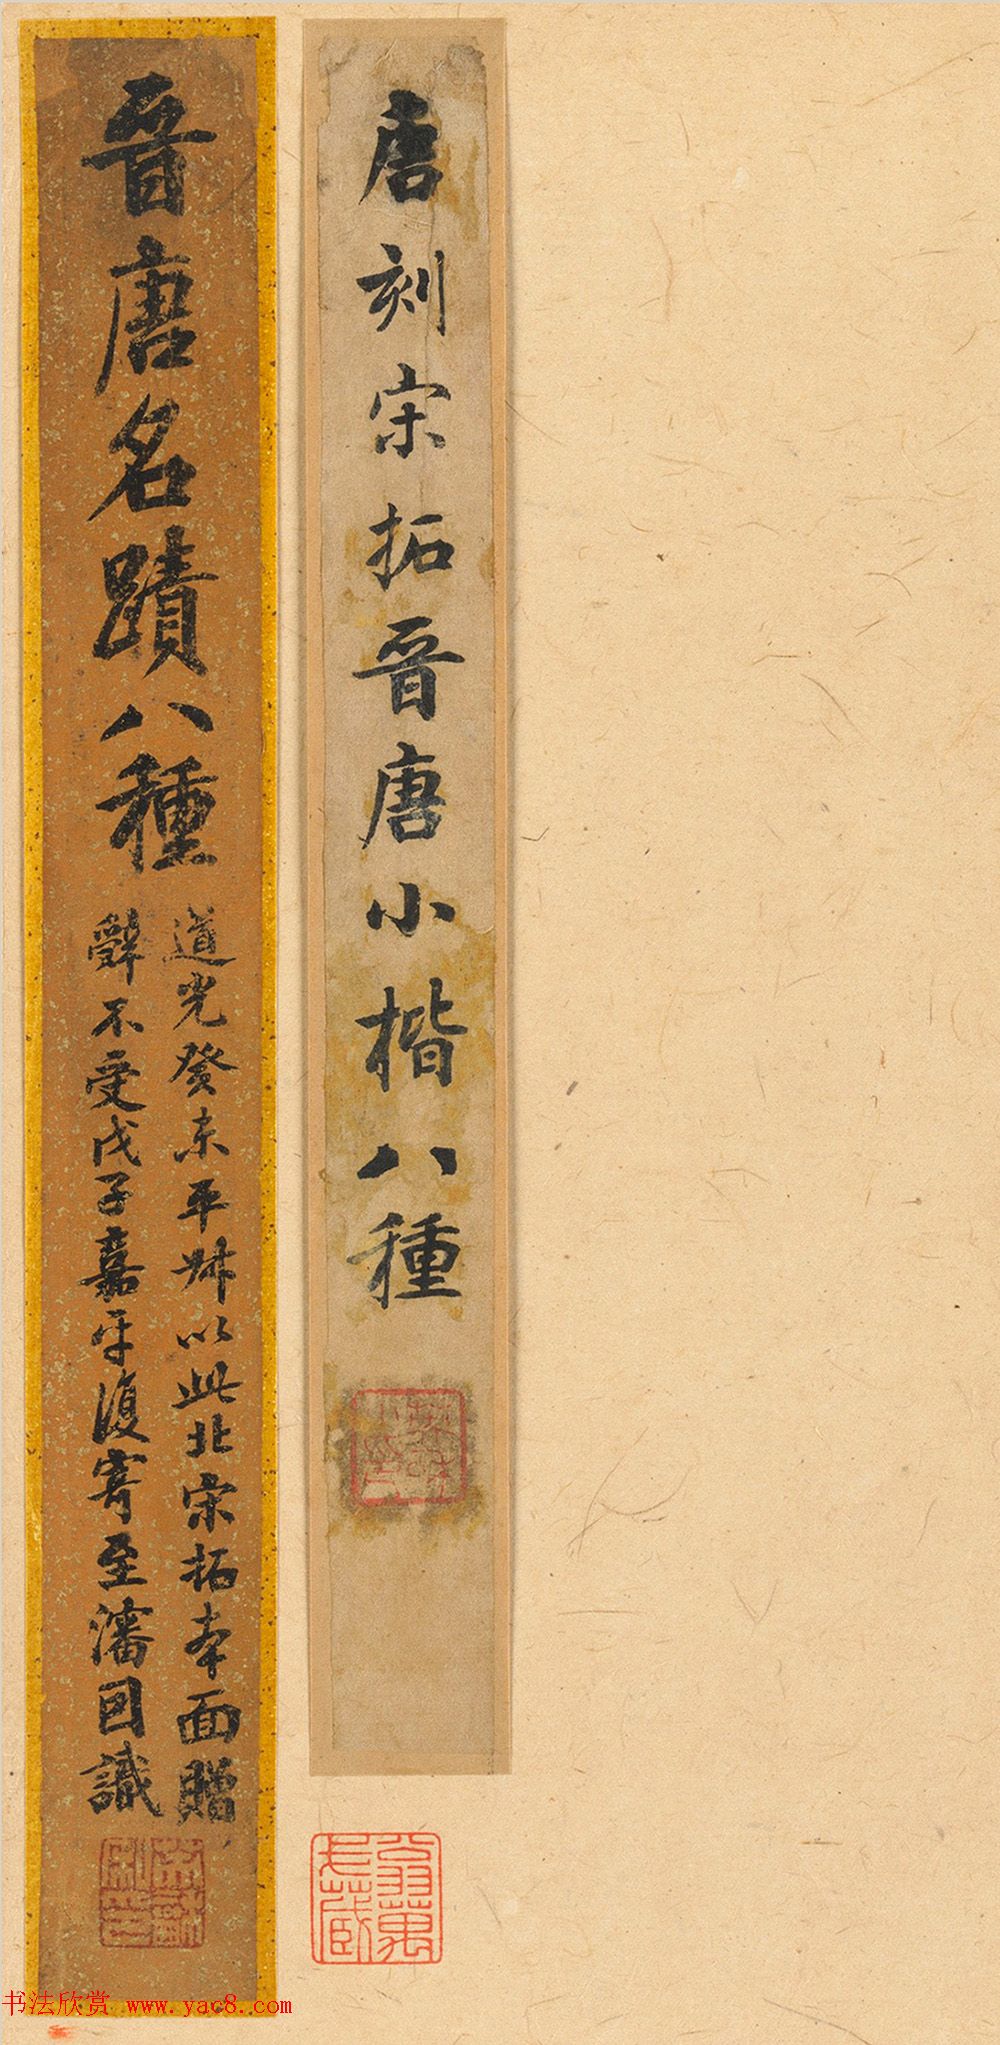 唐刻宋拓晋唐小楷八種
晋唐名蹟八種
道光癸未平叔以此北宋拓本面贈
辭不受戊子嘉平復寄至瀋因識
翁萬戈藏
书法欣赏 www.yac8.com